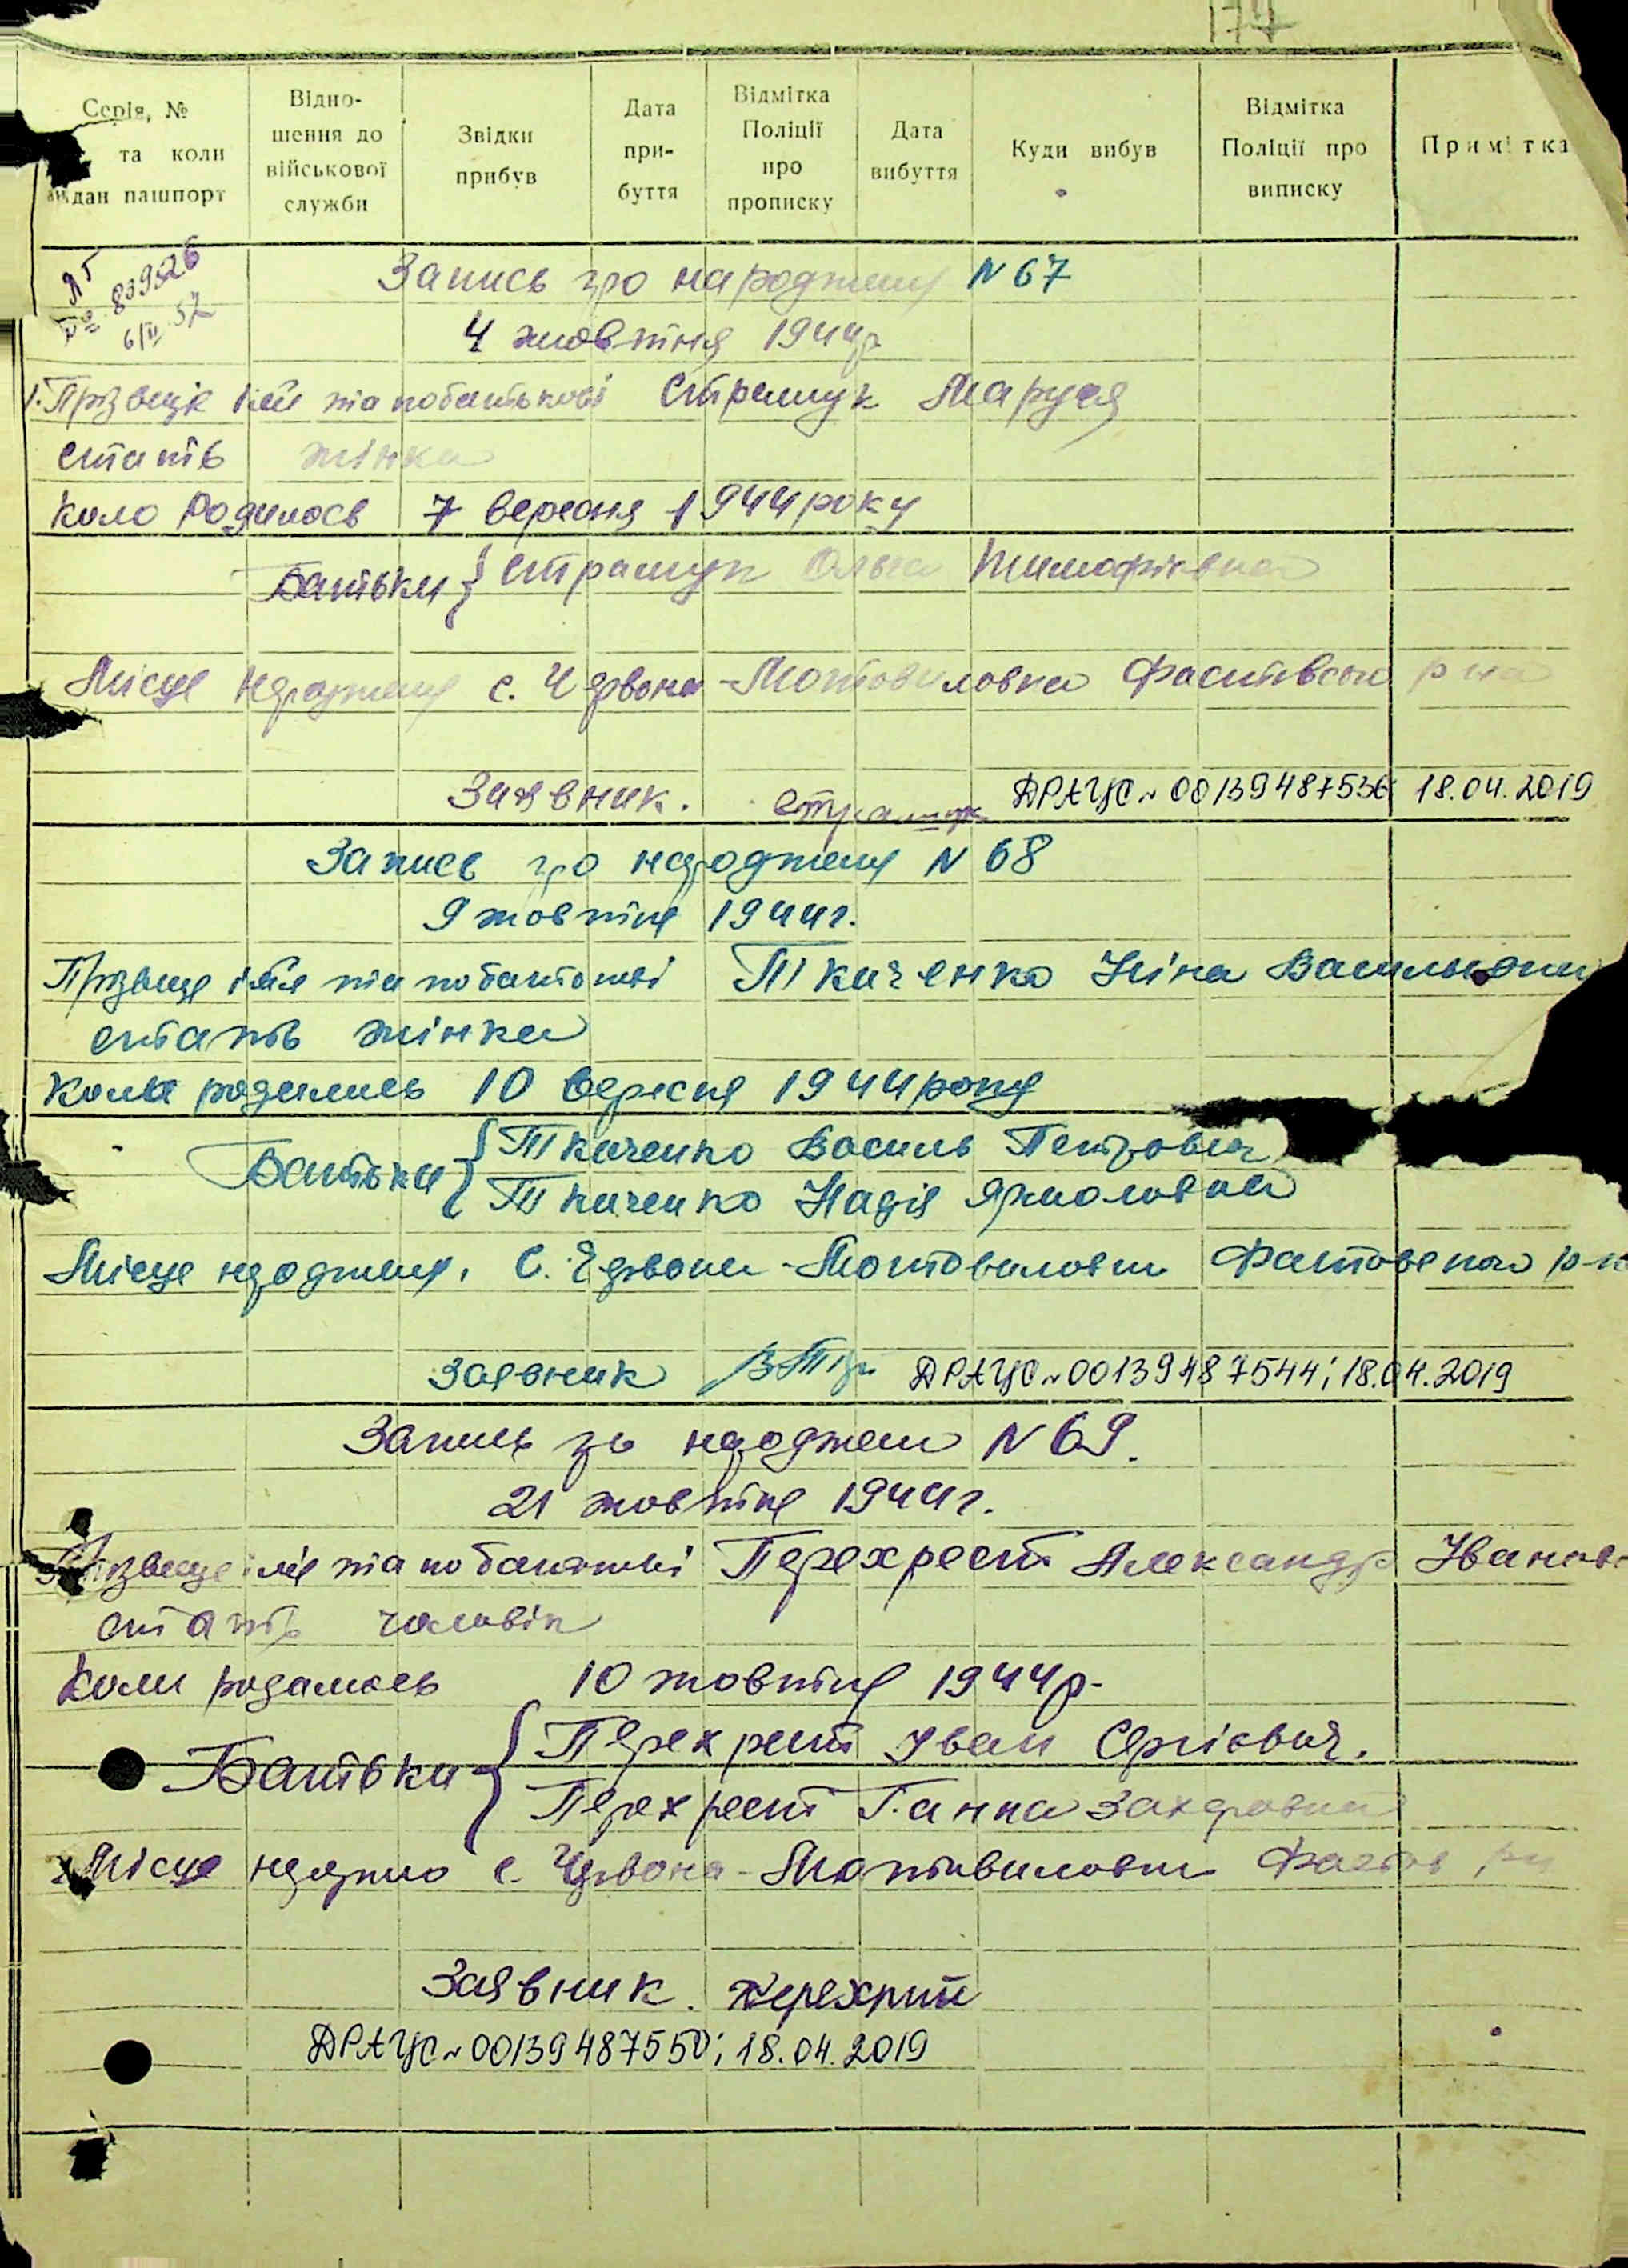 177
Серія, № та коли видан пашпорт
Відношення до військової служби
Звідки прибув
Дата прибуття
Відмітка Поліції про прописку
Дата вибуття
Куди вибув
Відмітка Поліції про виписку
Примітка
ЯГ
№ 839526
6/II 57
Запись про народженя N 67
4 жовтня 1944р
1. Прізвище імя та побатькові Страшук Маруся
стать жінка
коло Родилось 7 вересня 1944 року
Батьки { Страшук Ольга Тимофіївна
Місце народженя с. Червона-Мотовиловка Фастівсько р на
Заявник. Страшук ДРАЦС ~ 00139487536 18.04.2019
Запись про народженя N 68
9 жовтня 1944г.
Прізвище імя та побатькові Ткаченко Ніна Васильовна
стать жінка
Коли родилась 10 вересня 1944 року
Батьки { Ткаченко Василь Петрович
Ткаченко Надія Ярмоловна
Місце народженя. С. Червона-Мотовиловка Фастовского р-н
Заявник ДРАЦС ~ 00139487544; 18.04.2019
Запись про народжен N 69.
21 жовтня 1944г.
Прізвище імя та побатькові Перехрест Александр Іванов
стать чоловік
Коли родилось 10 жовтня 1944р.
Батьки { Перехрест Іван Сергієвич.
Перехрест Ганна Захаровна
Місце с. Червона-Мотовиловка Фастов рн
Заявник. Перехрест
ДРАЦС ~ 00139487550; 18.04.2019